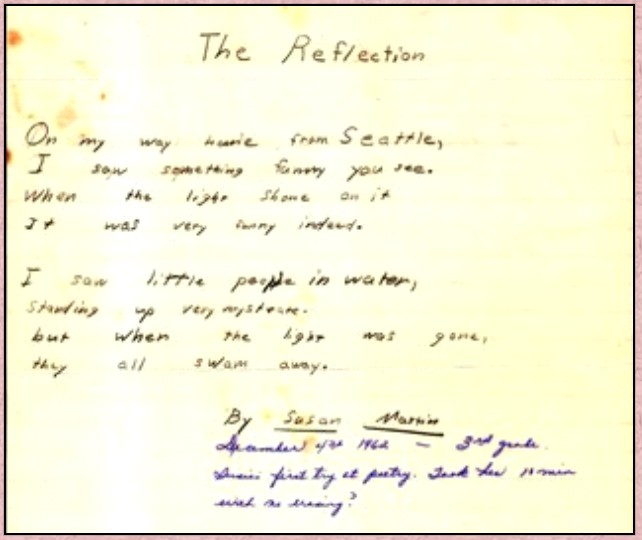 The Reflection
On my way home from Seattle,
I saw something funny you see.
When the light shone on it
It was very funny indeed.
I saw little people in water,
Standing up very
but when the light was gone,
they all swam away.
By Susan Martin
December 1962 — 3rd grade.
Susie's first try at poetry. Took her 10 min
with no erasing?